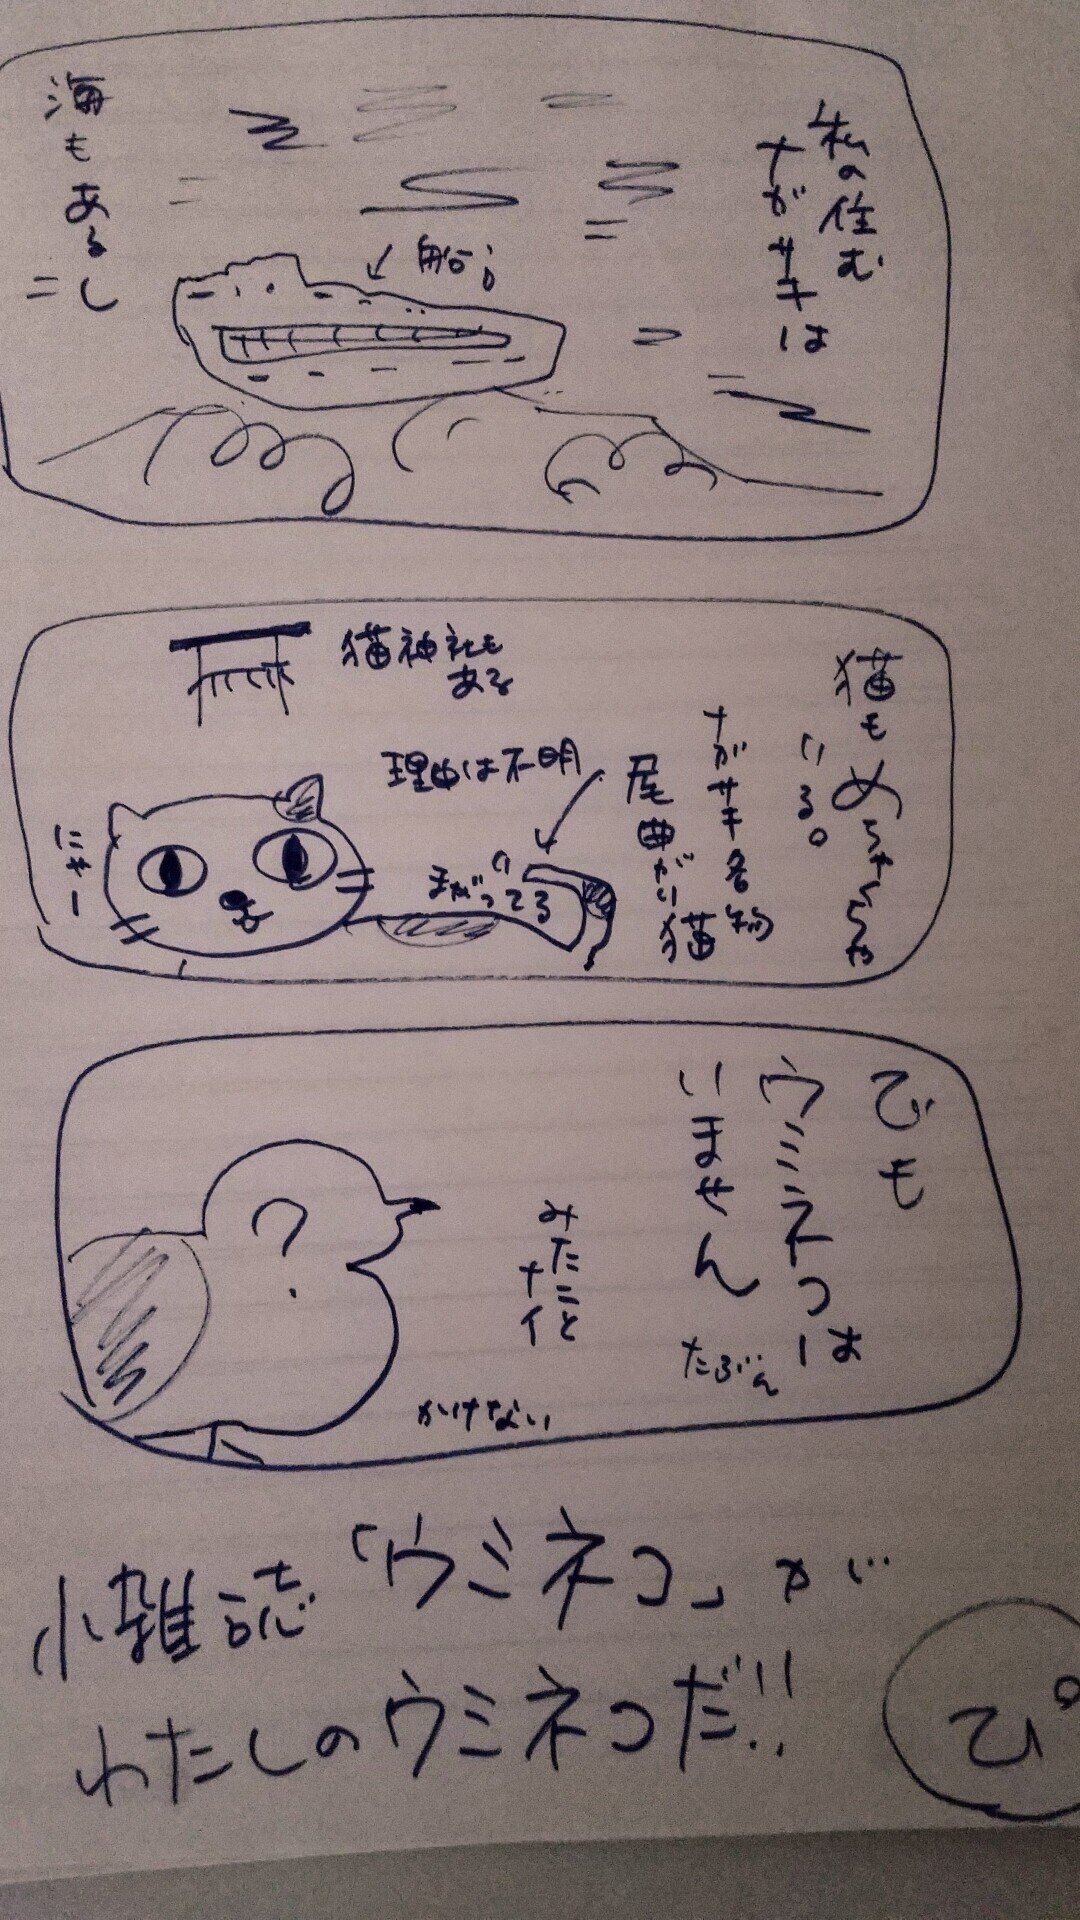 私の住む
ナガサキは
船
海もあるし
猫もめちゃくちゃ
いる。
ナガサキ名物
尾曲がり猫
理由は不明
まがっている
猫神社も
ある
にゃー
でも
ウミネコは
いません
たぶん
みたこと
ナイ
かけない
?
小雑誌「ウミネコ」が
わたしのウミネコだ!!
ぴ